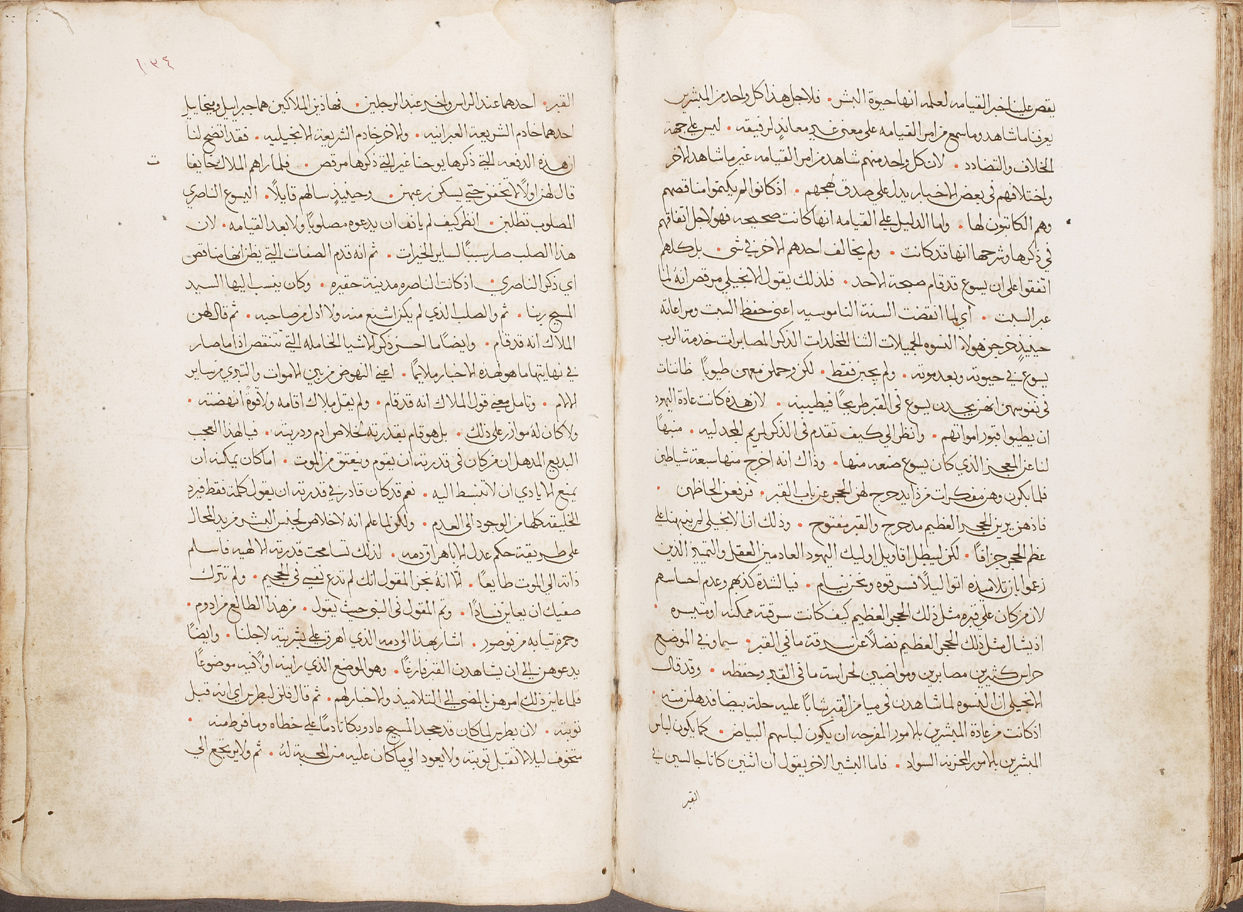 يقص علينا خبر القيامه لعلمه انها حيوة البشر • فلاجل هذا كل واحد من المبشرين
يعرفنا ما شاهد وما سمع من امر القيامه على معنى غير معاند لرفيقه • ليس على جهة
الخلاف والتضادد • لان كل واحد منهم شاهد من امر القيامه غير ما شاهد الاخر
واختلافهم في بعض الاخبار يدل على صدق لهجهم • اذ كانوا لم يكتموا مناقصهم
وهم الكاتبون لها • واما الدليل على القيامه انها كانت صحيحه فهو لاجل اتفاقهم
في ذكرها وشرحها انها قد كانت • ولم يخالف احدهم الاخر في شي • بل كلهم
اتفقوا على ان يسوع قد قام صبحة الاحد • فلذلك يقول الانجيلي مرقص انه لما
عبر السبت • اي لما انقضت السنة الناموسيه اعني حفظ السبت ومراعاته
حينيذ خرجن هولا النسوه الجميلات الثنا المخلدات الذكر المصابرات خدمة الرب
يسوع في حيوته وبعد موته • ولم يجين فقط • لكن وحملن معهن طيوبا ظانات
في نفوسهن انهن يجدن يسوع في القبر طريحا فيطيبنه • لان هذه كانت عادة اليهود
ان يطيبوا قبور امواتهم • وانظر الى كيف تقدم في الذكر لمريم المجدليه • منبها
لنا عن المعجز الذي كان يسوع صنعه منها • وذاك انه اخرج منها سبعة شياطين
فلما يكون وهن مفكرات من ذا يدحرج لهن الحجر عن باب القبر • فرفعن الحاظهن •
فاذ هن يرين الحجر العظيم مدحرج والقبر مفتوح • وذلك ان الانجيلي لم ينبهنا على
عظم الحجر جزافا • لكن ليبطل اقاويل اوليك اليهود العادمين العقل والتمييز الذين
زعموا بان تلاميذه اتوا ليلا فسرقوه ونحن نيام • فيا لشدة كذبهم وعدم احساسهم
لان من كان على قبره مثل ذلك الحجر العظيم كيف كانت سرقته ممكنه او متيسره •
اذ يشال مثل ذلك الحجر العظيم فضلا عن سرقة ما في القبر • سيما وفي الموضع
حراس كثيرين مصابرين ومواضبين لحراسة ما في القبر وحفظه • وقد قال
الانجيلي ان النسوه لما شاهدن في ميامن القبر شابا عليه حلة بيضا فدهلن منه •
اذ كانت من عادة المبشرين بالامور المفرحه ان يكون لباسهم البياض • كما يكون لباس
المبشرين بالامور المحزنه السواد • فاما البشير الاخر يقول ان اثنين كانا جالسين في
القبر
١٣٤
القبر • احدهما عند الراس واخر عند الرجلين • فهاذين الملاكين هما جبراييل وميخاييل
احدهما خادم الشريعة العبرانيه • والاخر خادم الشريعة الانجيليه • فقد اتضح لنا
ان هذه الدفعه التي ذكرها يوحنا غير التي ذكرها مرقص • فلما راهم الملاك خايفا
ت
قال لهن اولا لا تخفن حتى يسكن رعبهن • وحينيذ سالهم قايلا • اليسوع الناصري
المصلوب تطلبن • انظر كيف لم يانف ان يدعوه مصلوبا ولا بعد القيامه • لان
هذا الصلب صار سببا لساير الخيرات • ثم انه قدم الصفات التي يظن انها مناقص
اي ذكر الناصري • اذ كانت الناصره مدينة حقيره • وكان ينسب اليها السيد
المسيح ربنا • ثم والصلب الذي لم يكن اشنع منه ولا ادل من صاحبه • ثم قال لهن
الملاك انه قد قام • وايضا ما احسن ذكر الاشيا الخامله التي تنتقص اذا ما صار
في نهايتها ما هو لهذه الاخبار ملايما • اعني النهوض من بين الاموات والتبري من ساير
الالام • وتامل معنى قول الملاك انه قد قام • ولم يقل ملاك اقامه ولا قوة انهضته •
ولا كان له موازر على ذلك • بل هو قام بقدرته لخلاص ادم وذريته • فيا لهذا العجب
البديع المدهل ان من كان في قدرته ان يقوم وينعتق من الموت • اما كان يمكنه ان
يمنع الايادي ان لا تنبسط اليه • نعم قد كان قادر في قدرته ان يقول كلمة فقط فيرد
الخليقه كلها من الوجود الى العدم • ولكن لما علم انه لا خلاص لجنس البشر من يد المحال
على طريقة حكم عدل الا باهراق دمه • لذلك تسامحت قدرته الالهيه فاسلم
ذاته الى الموت طايعا • لما انه نجز المقول انك لم تدع نفسي في الجحيم • ولم تترك
صفيك ان يعاين فسادا • وتم المقول في النبي حيث يقول • من هذا الطالع من ادوم •
وحمرة ثيابه من بوصور • اشار بهذا الى دمه الذي اهرق على بشريته لاجلنا • وايضا
يدعوهن الى ان يشاهدن القبر فارغا • وهو الموضع الذي راينه اولا فيه موضوعا
فلما عاين ذلك امرهن بالمضي الى التلاميذ والاخبار لهم • ثم قال قلن لبطرس اي انه قبل
توبته • لان بطرس لما كان قد جحد المسيح عاد وبكا نادما على خطاه وما فرط منه •
متخوف ليلا لا تقبل توبته ولا يعود الى ما كان عليه من المحبة له • ثم ولا يرتجع الى